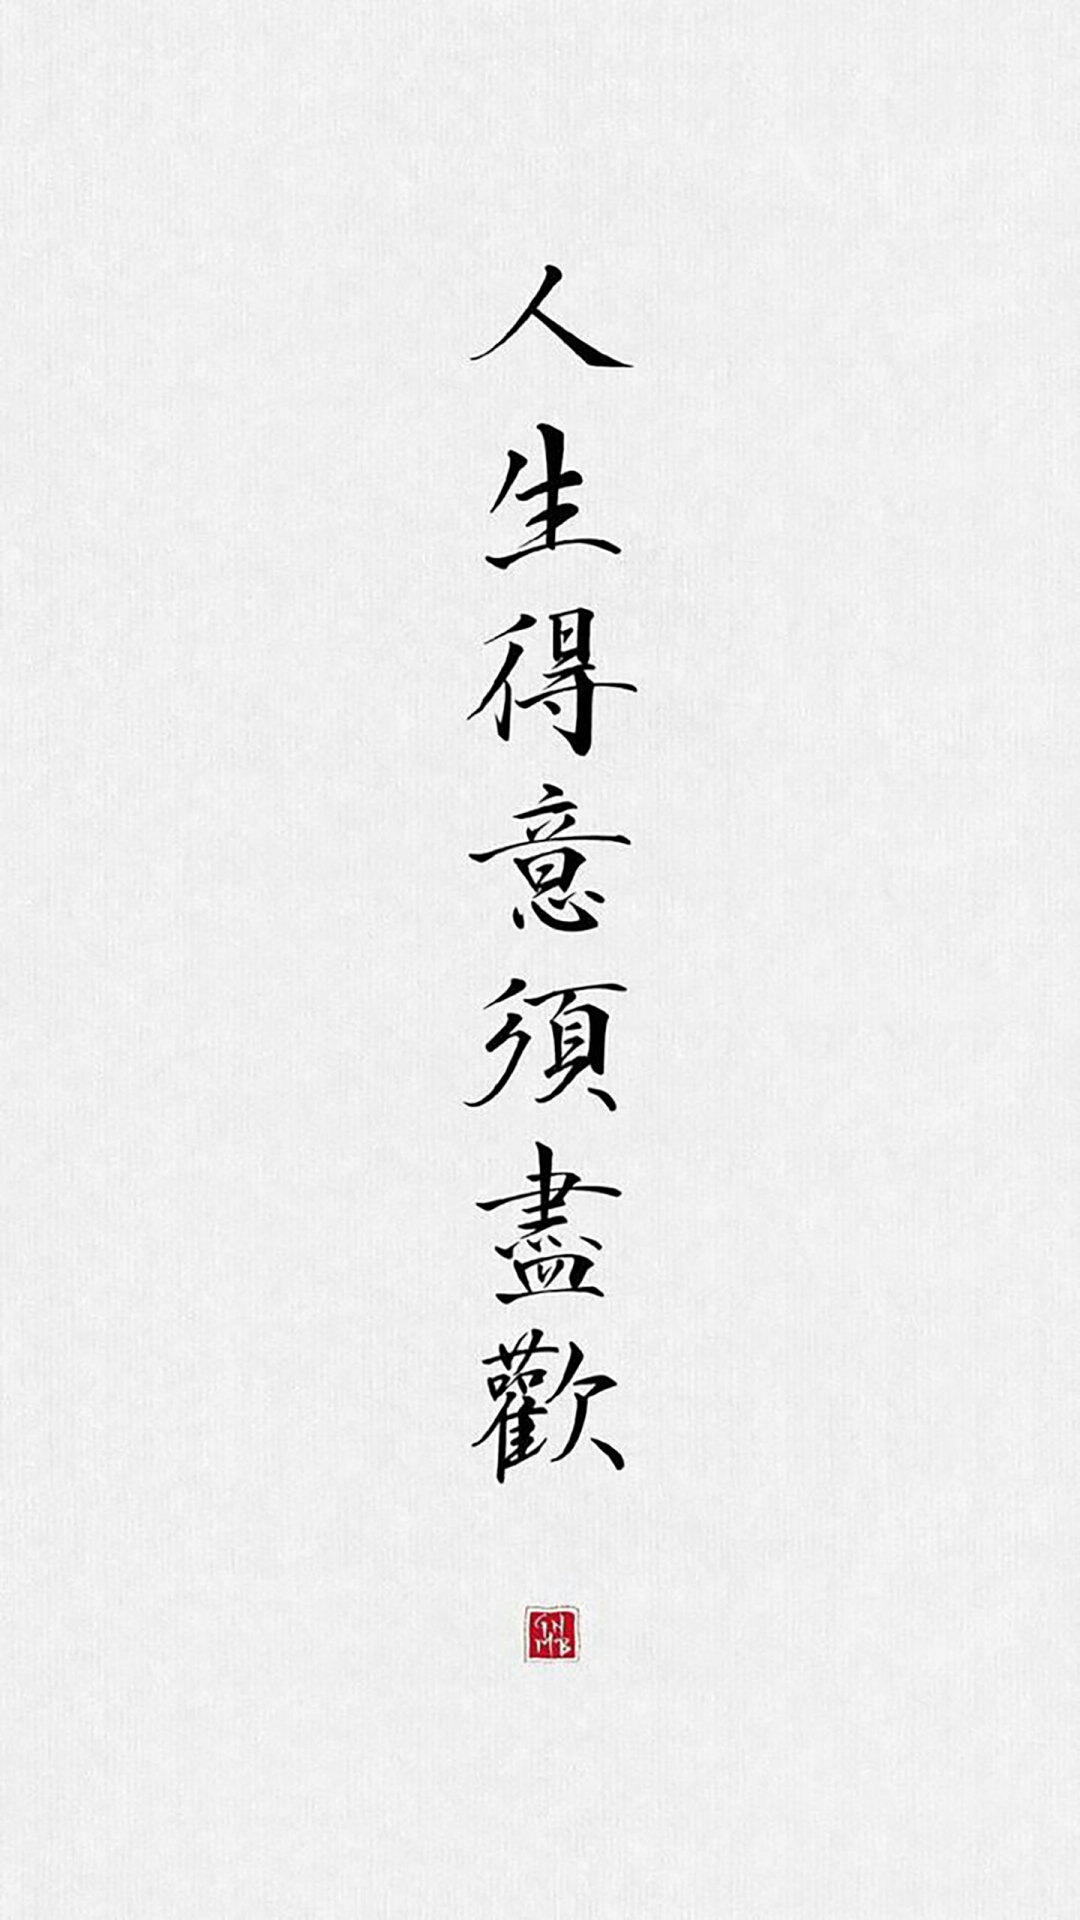 人生得意須盡歡
GN
MB